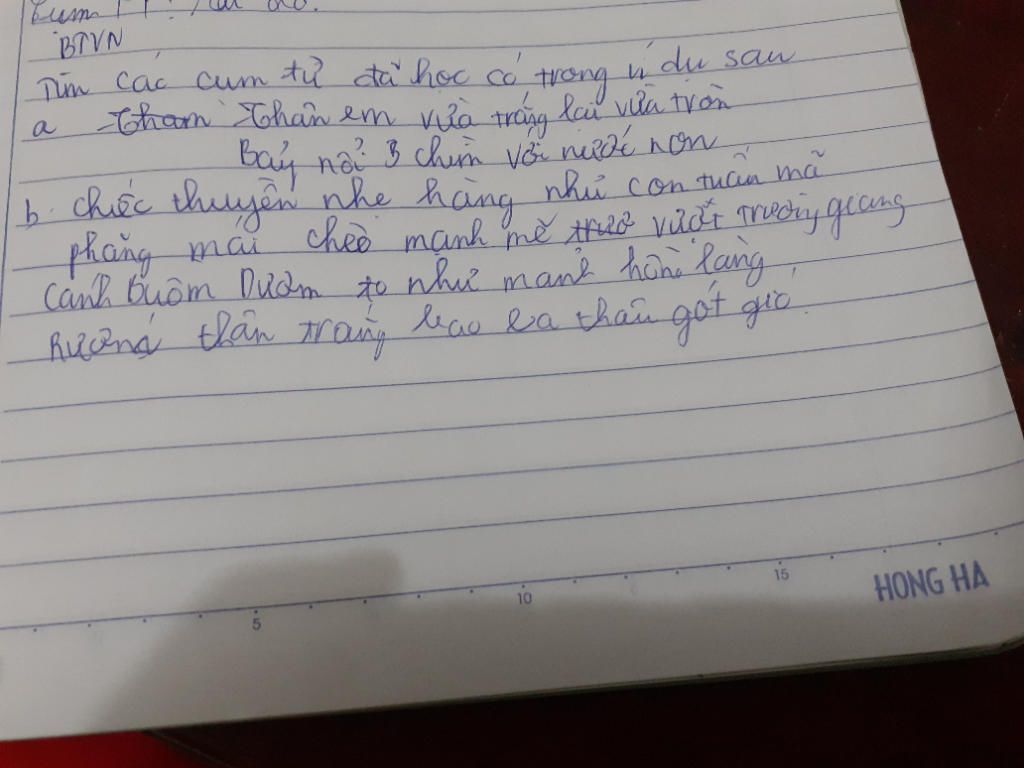 BTVN
Tìm các cụm từ đã học có trong ví dụ sau
a Tham Thân em vừa trắng lại vừa tròn
Bảy nổi 3 chìm với nước non
b. chiếc thuyền nhẹ hăng như con tuấn mã
phăng mái chèo mạnh mẽ trươ vượt trường giang
Cánh buồm Dươm to như mảnh hồn làng
Rướng thân trắng bao la thâu góp gió.
5
10
15
HONG HA